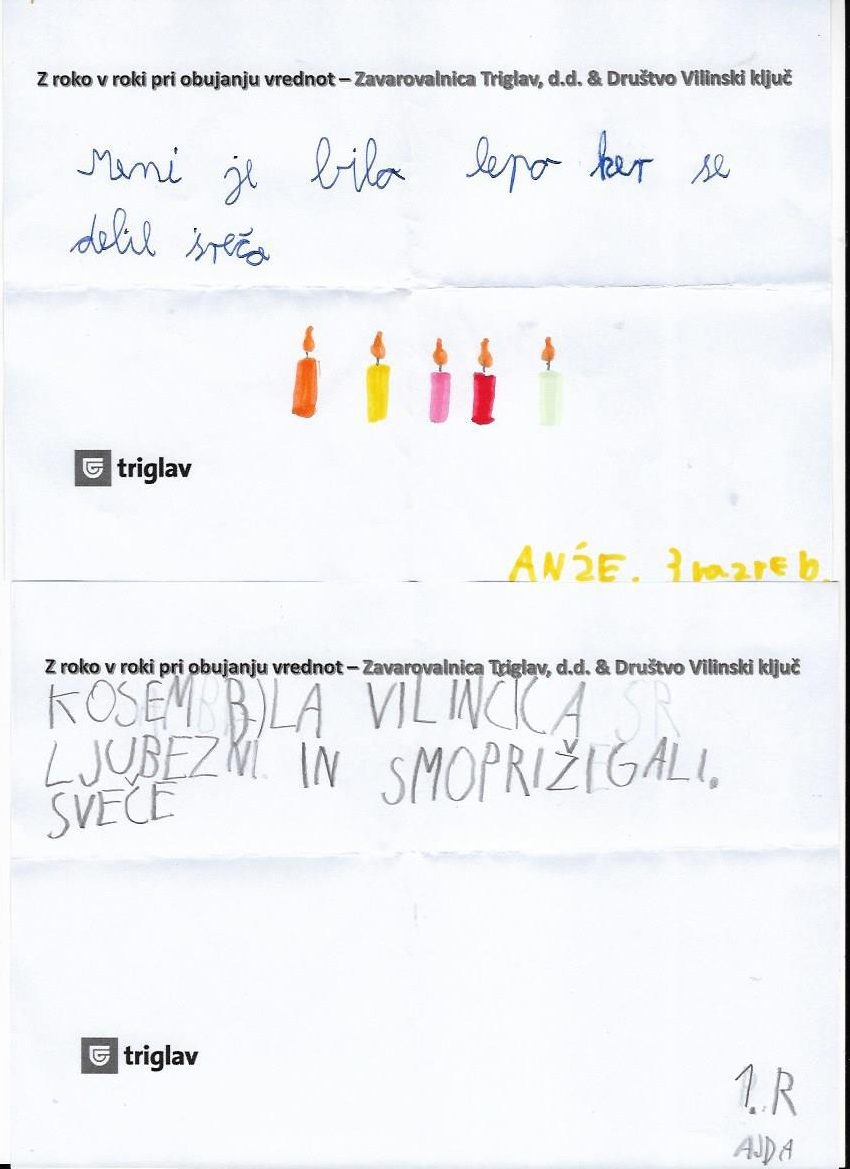 Z roko v roki pri obujanju vrednot – Zavarovalnica Triglav, d.d. & Društvo Vilinski ključ
Meni je bila lepo ker se
delil sreča
triglav
ANŽE. 3 razred b.
Z roko v roki pri obujanju vrednot – Zavarovalnica Triglav, d.d. & Društvo Vilinski ključ
KOSEM BILA VILINČICA
LJUBEZNI IN SMOPRIŽIGALI.
SVEČE
triglav
1. R
AJDA